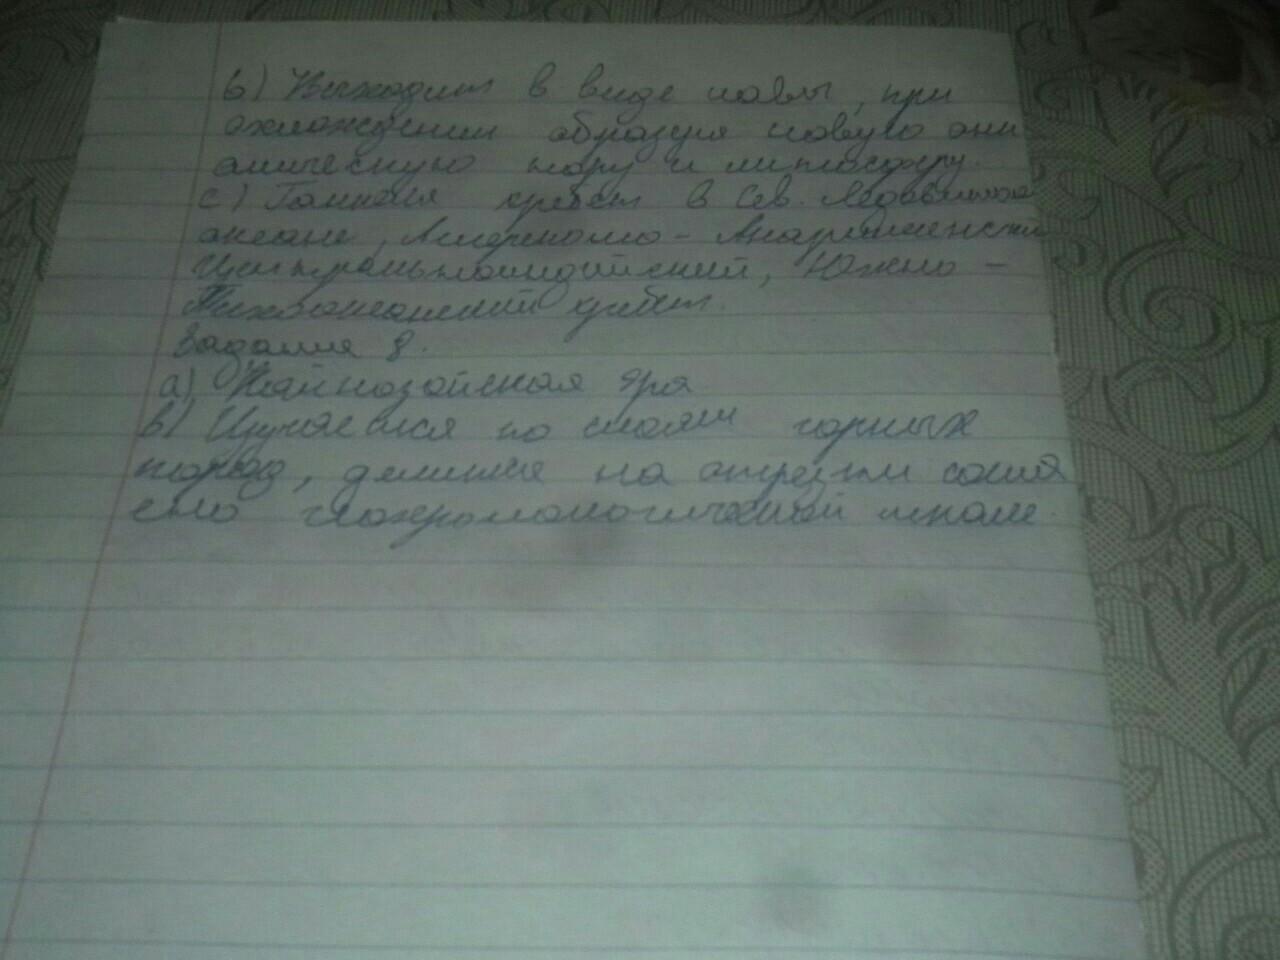 b) Выходит в виде лавы, при
охлаждении образуя новую оки
аническую кору и литосферу.
c) Гаккеля хребет в Сев. Ледовитом
океане, Австрало-Антарктически
Центральноиндийский, Южно-
Тихоокеанский хребет.
Задание 8.
a) Кайнозойская эра
b) Изучается по слоям горных
пород, делится на отрезки согла
сно геохронологической шкале.